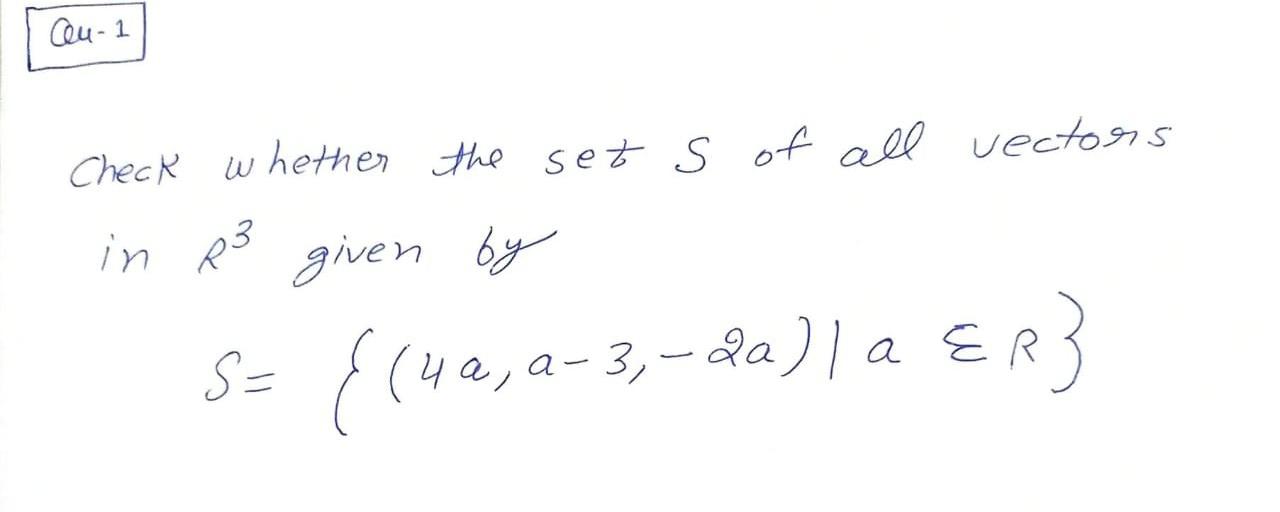 Qu-1
Check whether the set S of all vectors
in R³ given by
S= {(4a, a-3, -2a) | a ∈ R}